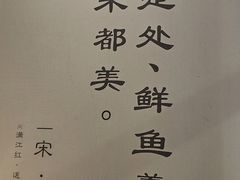 处、鲜鱼
都美。
一宋·
《满江红·